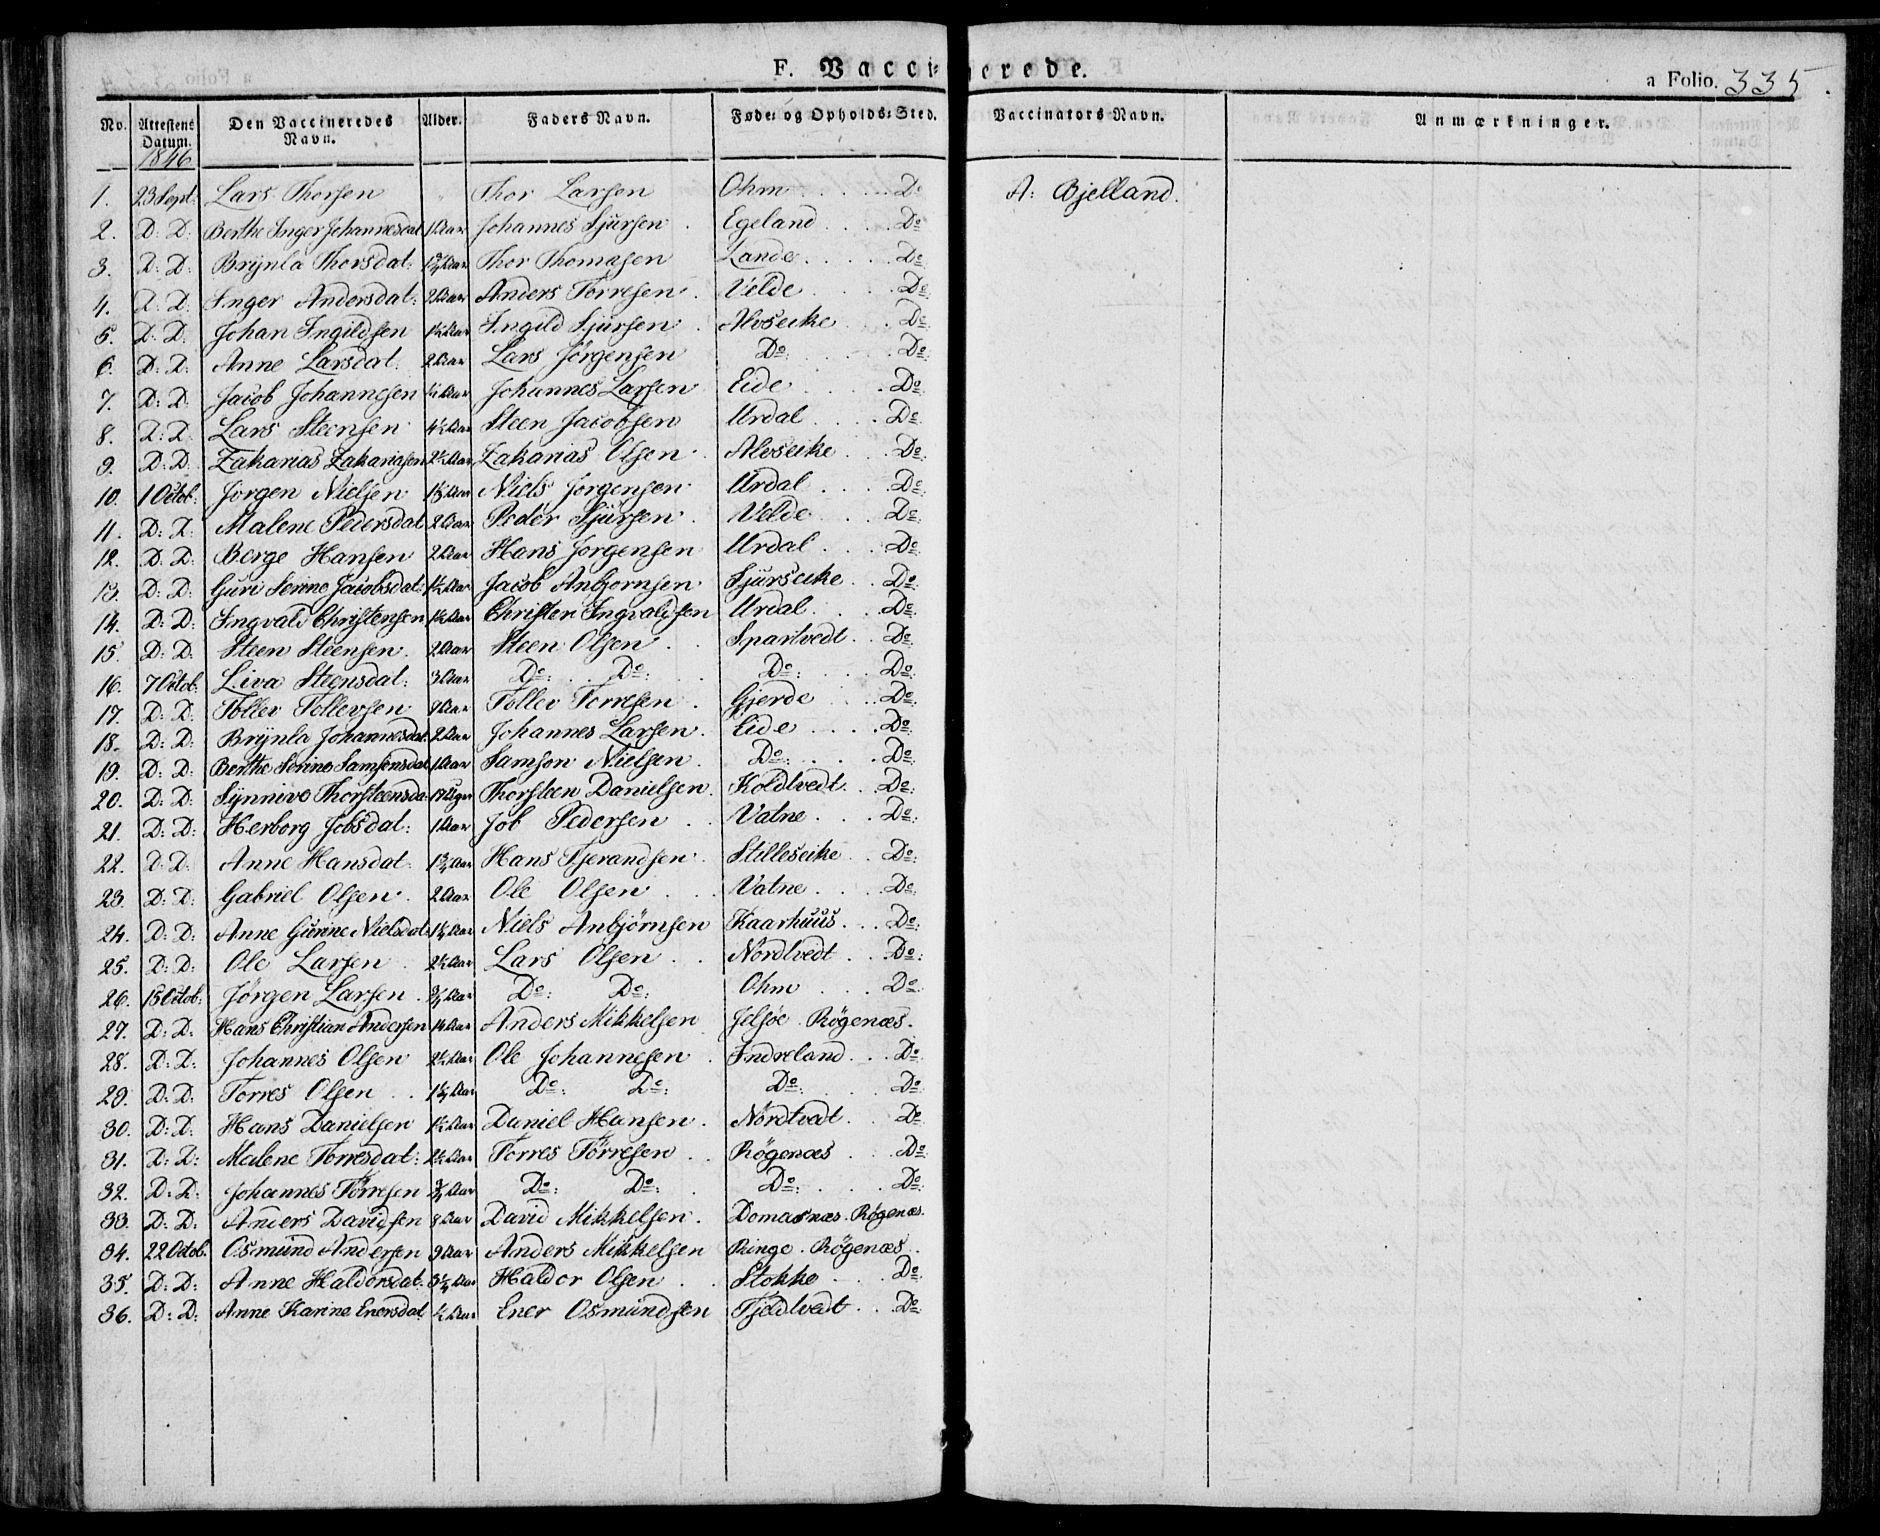 F. Vaccinerede. a Folio. 335.
No. Attestens Datum. Den Vaccineredes Navn. Alder. Faders Navn. Føde- og Opholds-Sted. Vaccinators Navn. Anmærkninger.
1846
1. 23 Sept. Lars Thorsen Thor Larsen Ohm Do A: Bjelland.
2. D: D: Berthe Inger Johannesdat 1 Aar Johannes Sjursen Egeland Do
3. D: D: Brynla Thorsdat: Aar Thor Thomasen Lande Do
4. D: D: Inger Andersdat: 2 Aar Anders Torresen Velde Do
5. D: D: Johan Ingildsen 1½ Aar Ingild Sjursen Alvseike Do
6. D: D: Anne Larsdat: 2 Aar Lars Jørgensen Do: Do
7. D: D: Jacob Johannesen Aar Johannes Larsen Eide Do
8. D: D: Lars Steensen 4½ Aar Steen Jacobsen Urdal Do
9. D: D: Zakarias Zakariasen 2½ Aar Zakarias Olsen Alvseike Do
10. 1 Octob: Jørgen Nielsen Aar Niels Jørgensen Urdal Do
11. D: D: Malene Pedersdat 2 Aar Peder Sjursen Velde Do
12. D: D: Berge Hansen 2 Aar Hans Jørgensen Urdal Do
13. D: D: Guri Serine Jacobsdat: 1½ Aar Jacob Anbjørnsen Sjurseike Do
14. D: D: Ingvald Christensen 1½ Aar Christen Ingvaldsen Urdal Do
15. D: D: Steen Steensen 2 Aar Steen Olsen Spartvedt Do
16. 7 Octob: Liva Steensdat: 3 Aar Do: Do: Do: Do
17. D: D: Tollev Tollevsen Aar Tollev Torresen Gjerde Do
18. D: D: Brynla Johannesdat: 2 Aar Johannes Larsen Eide Do
19. D: D: Berthe Serine Samsensdat 1 Aar Samson Nielsen Do: Do
20. D: D: Synnive Thorsteensda: Uger Thorsteen Danielsen Koldtvedt Do:
21. D: D: Herborg Jobsdat: 1 Aar Job Pedersen Vatne Do:
22. D: D: Anne Hansdat: 1¾ Aar Hans Tjerandsen Stilleseike Do:
23. D: D: Gabriel Olsen 2 Aar Ole Olsen Vatne Do:
24. D: D: Anne Gurine Nielsdat: 1¼ Aar Niels Anbjørnsen Kaarhuus Do:
25. D: D: Ole Larsen 2½ Aar Lars Olsen Nordtvedt Do:
26. 15 Octob: Jørgen Larsen ¾ Aar Do: Do: Ohm Do
27. D: D: Hans Christian Andersen 14 Aar Anders Mikkelsen Jelsøe Røgenæs.
28. D: D: Johannes Olsen 2½ Aar Ole Johannesen Indreland Do
29. D: D: Torres Olsen 1¼ Aar Do: Do: Do: Do
30. D: D: Hans Danielsen 1½ Aar Daniel Hansen Nordtvedt Do
31. D: D: Malene Torresdat: 2½ Aar Torres Torresen Røgenæs Do
32. D: D: Johannes Torresen ¾ Aar Do: Do: Do: Do
33. D: D: Anders Davidsen 8 Aar David Mikkelsen Domasnæs. Røgenæs.
34. 22 Octob. Osmund Andersen 9 Aar Anders Mikkelsen Ringe. Røgenæs.
35. D: D: Anne Haldorsdat: 3¼ Aar Haldor Olsen Stokke Do
36. D: D: Anne Karine Enersdat ½ Aar Ener Osmundsen Fjeldtvedt Do: